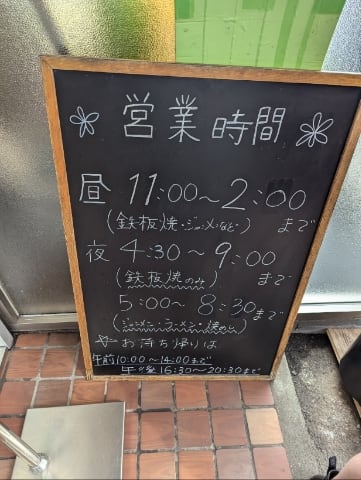 営業時間
昼 11:00〜2:00
(鉄板焼・ジャーメンなど) まで
夜 4:30〜9:00
(鉄板焼のみ) まで
5:00〜8:30まで
(ジャーメン・ラーメン・焼めし)
お持ち帰りは
午前10:00〜14:00まで
午後16:30〜20:30まで